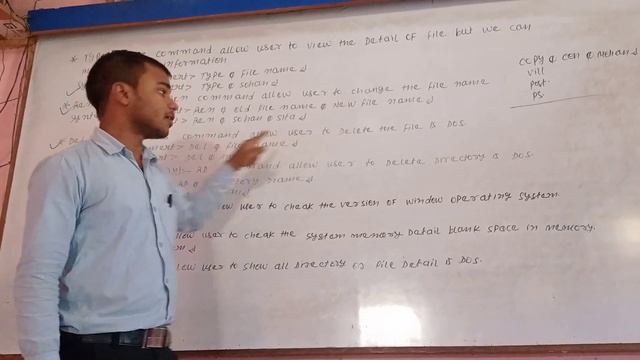 * Type command allow user to view the Detail of file but we can
information
> Type ¢ File name ↲
> Type ¢ Sohan ↲
command allow user to change the file name
> Ren ¢ old file name ¢ New file name ↲
> Ren ¢ Sohan ¢ Sita ↲
command allow user to Delete the file is DOS.
> Del ¢ File name ↲
> Del ¢
command allow user to Delete Directory is DOS.
name ↲
user to cheak the version of window operating system.
allow user to cheak the system memory Datail blank space in memory.
allow user to show all Directory or File Detail is DOS.
copy ¢ con ¢ Mohan ↲
vill
post.
PS.